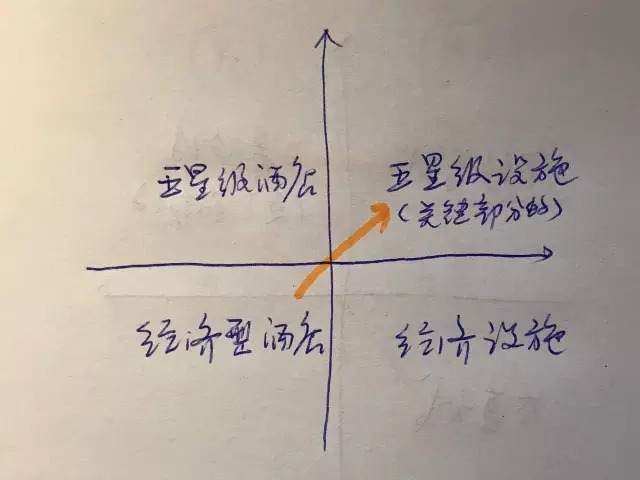 五星级酒店
五星级设施
(关键部分的)
经济型酒店
经济设施